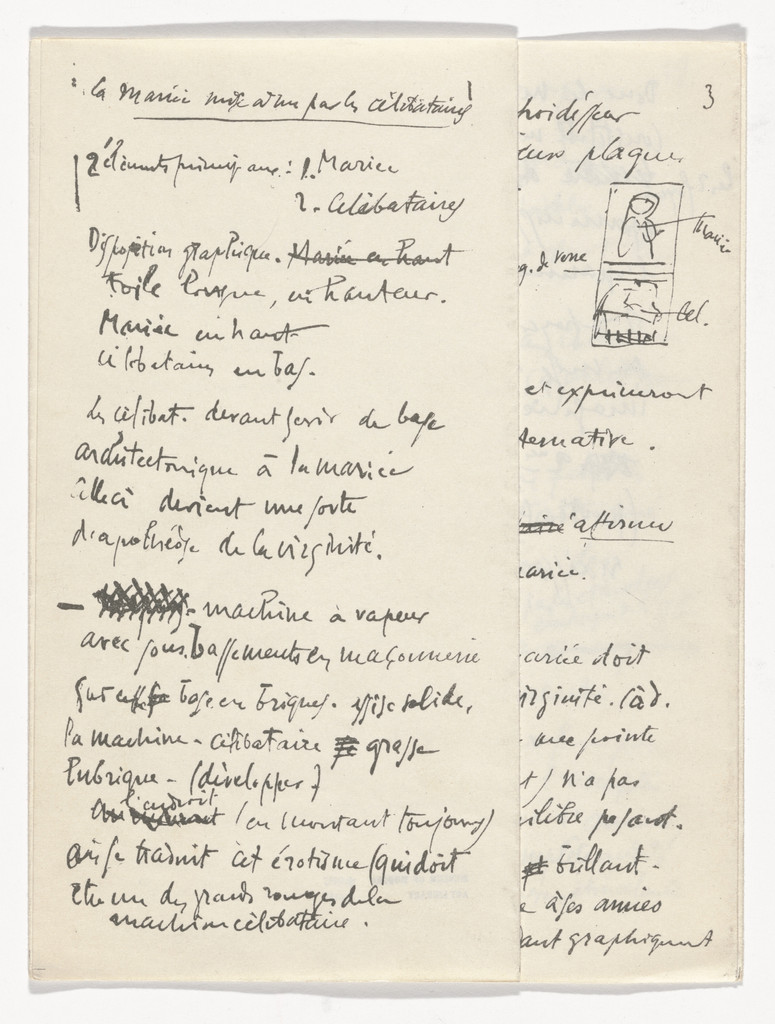 la Mariée mise à nu par les célibataires
2 éléments principaux : 1. Mariée
2. Célibataires
Disposition graphique. Mariée en haut
toile longue, en hauteur.
Mariée en haut
célibataires en bas.
Les célibat. devant servir de base
architectonique à la mariée
celleci devient une sorte
d'apothéose de la virginité.
– machine à vapeur
avec sous bassements en maçonnerie
Sur cette base en briques. assise solide,
la machine - célibataire grasse
lubrique - (développer)
l'endroit (en montant toujours)
où se traduit cet érotisme (qui doit
être un des grands rouages de la
machine célibataire.
3
froidisseur
deux plaques
g. de verre
Mariée
Cel.
et exprimeront
ternative.
affirmer
mariée.
ariée doit
irginité. càd.
une pointe
t) n'a pas
ilibre pesant.
brillant -
e âges amies
dant graphiquent